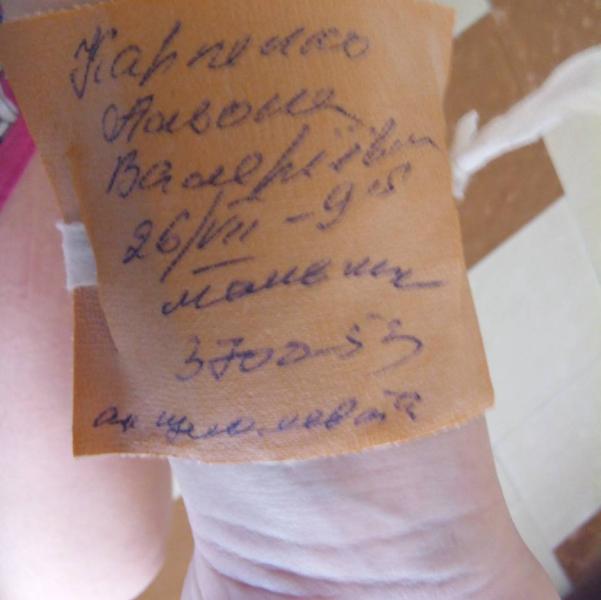 Карпенко
Альона
Валеріївн
26/VII - 9 15
мальчик
3700-53